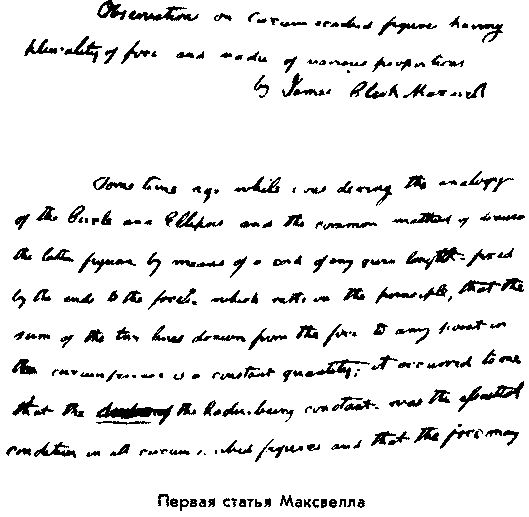 Observations on circumscribed figures having
plurality of foci and radii of various proportions
by James Clerk Maxwell
Some time ago while I was the analogy
of the Circle and Ellipse and the common method of
the latter figure by means of a cord of any given length fixed
by the ends to the foci which rests on the principle, that the
sum of the two lines drawn from the foci to any point in
the circumference is a constant quantity; it occurred to me
that the of the Radii being constant was the
condition in all circumscribed figures and that the foci may
Первая статья Максвелла